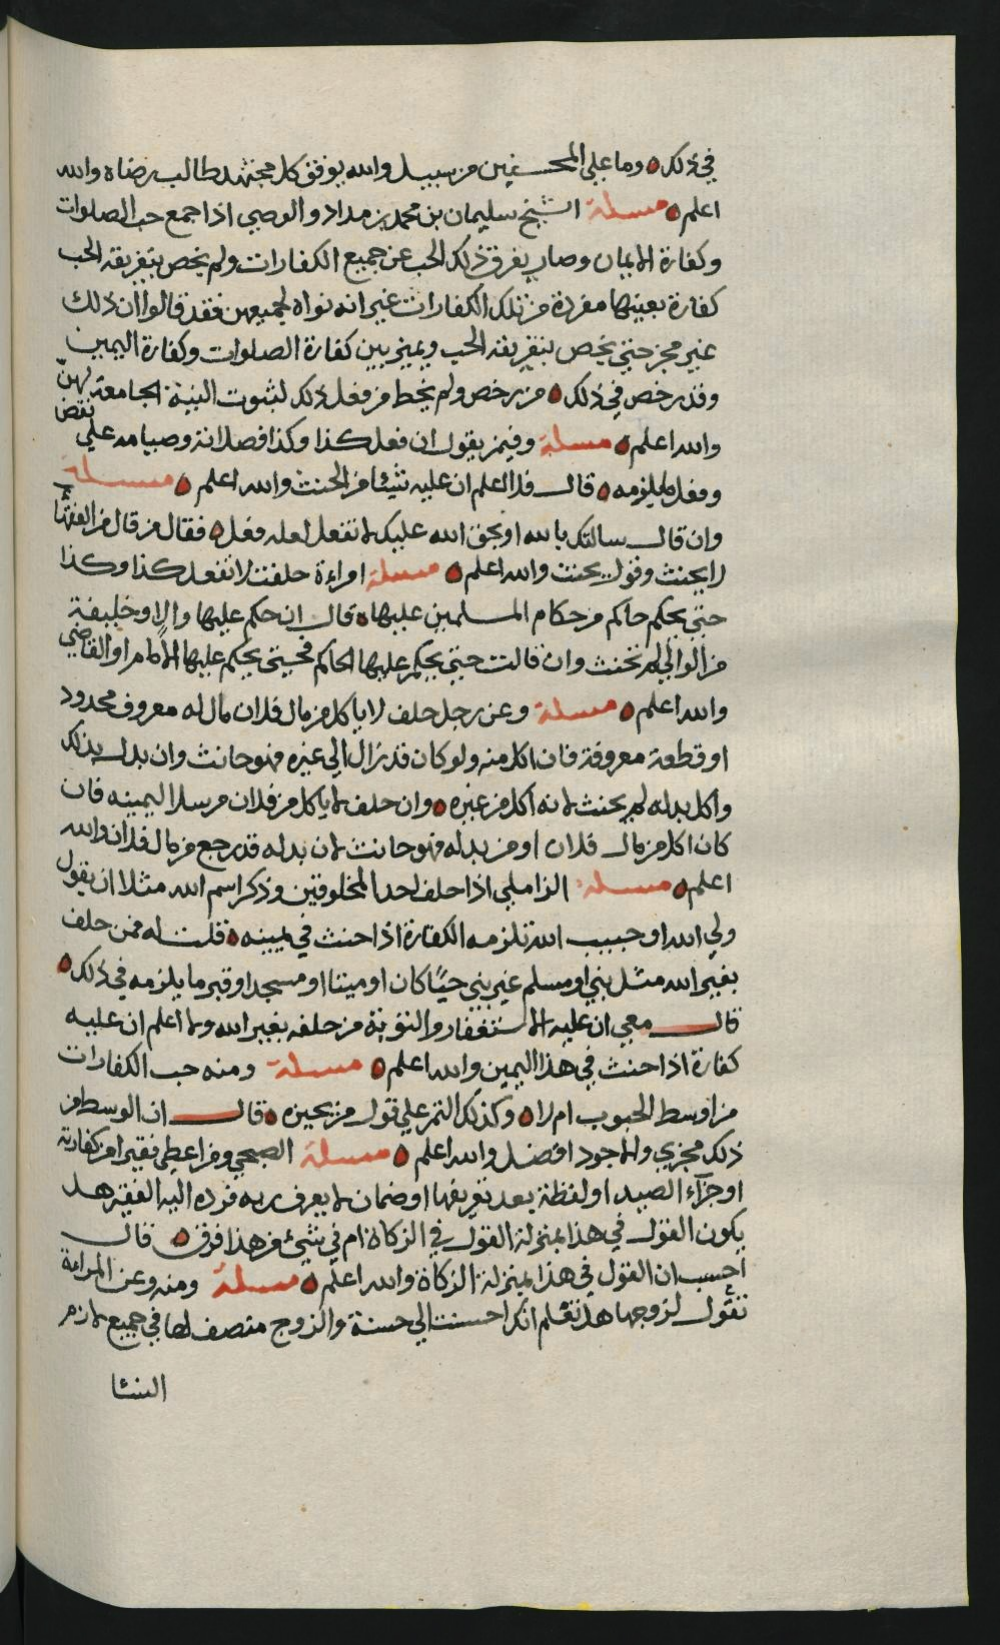 في ذلك ه وما على المحسنين من سبيل والله يوفق كل مجتهد طالب رضاه والله
اعلم ه مسئلة الشيخ سليمان بن محمد بن مداد والوصي اذا جمع حب الصلوات
وكفارة الايمان وصار يفرق ذلك الحب عن جميع الكفارات ولم يخص بتفريقه الحب
كفارة بعينها مفردة من تلك الكفارات غير انه نواه لجميعهن فقد قالوا ان ذلك
غير مجز حتى يخص بتفريقه الحب ويميز بين كفارة الصلوات وكفارة اليمين
وقد رخص في ذلك ه من رخص ولم يخط من فعل ذلك لثبوت النية الجامعة لهنّ
والله اعلم ه مسئلة وفيمن يقول ان فعل كذا وكذا فصلاته وصيامه على نقض
وفعل ما يلزمه ه قال فلا اعلم ان عليه شيئا من الحنث والله اعلم ه مسئلة
وان قال سالتك بالله او بحق الله عليك لا تفعل لعله فعل ه فقال من قال من الفقهاء
لا يحنث وقول يحنث والله اعلم ه مسئلة امراءة حلفت لا تفعل كذا وكذا
حتى يحكم حاكم من حكام المسلمين عليها ه قال ان حكم عليها وال او خليفة
من الوالي لم تحنث وان قالت حتى يحكم عليها الحاكم فحتى يحكم عليها الامام او القاضي
والله اعلم ه مسئلة وعن رجل حلف لا ياكل من مال فلان مال له معروف محدود
او قطعة معروفة فان اكل منه ولو كان قد زال الى غيره فهو حانث وان بدل بذلك
واكل بدله لم يحنث لانه اكل من غيره ه وان حلف لا ياكل من فلان مرسلا ليمينه فان
كان اكل من مال فلان او من بدله فهو حانث لان بدله قد رجع من مال فلان والله
اعلم ه مسئلة الزاملي اذا حلف لحد المخلوقين وذكر اسم الله مثلا ان يقول
ولي الله او حبيب الله تلزمه الكفارة اذا حنث في يمينه ه قلت له فمن حلف
بغير الله مثل نبي او مسلم غير نبي حيًا كان او ميتا او مسجد او قبر ما يلزمه في ذلك ه
قال معي ان عليه الاستغفار والتوبة من حلفه بغير الله ولا اعلم ان عليه
كفارة اذا حنث في هذا اليمين والله اعلم ه مسئلة ومنه حب الكفارات
من اوسط الحبوب ام لا ه وكذلك التمر على قول من يجيزه ه قال ان الوسط من
ذلك مجزي والاجود افضل والله اعلم ه مسئلة الصبحي ومن اعطى فقيرا من كفارته
او جزآء الصيد او لقطة بعد تعريفها او ضمان لا يعرف ربه فرده اليه الفقير هل
يكون القول في هذا بمنزلة القول في الزكاة ام في شيء من هذا فرق ه قال
احسب ان القول في هذا بمنزلة الزكاة والله اعلم ه مسئلة ومنه وعن المراءة
تقول لزوجها هل تعلم انك احسنت الي حسنة والزوج منصف لها في جميع لازم
النسا